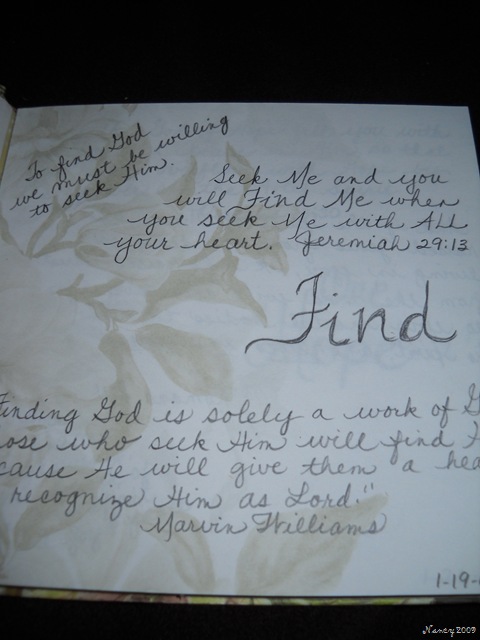 To find God
we must be willing
to seek Him.
Seek Me and you
will Find Me when
you seek Me with ALL
your heart. Jeremiah 29:13
Find
Finding God is solely a work of
who seek Him will find
He will give them a
recognize Him as Lord."
Marvin Williams
1-19-
Nancy2009